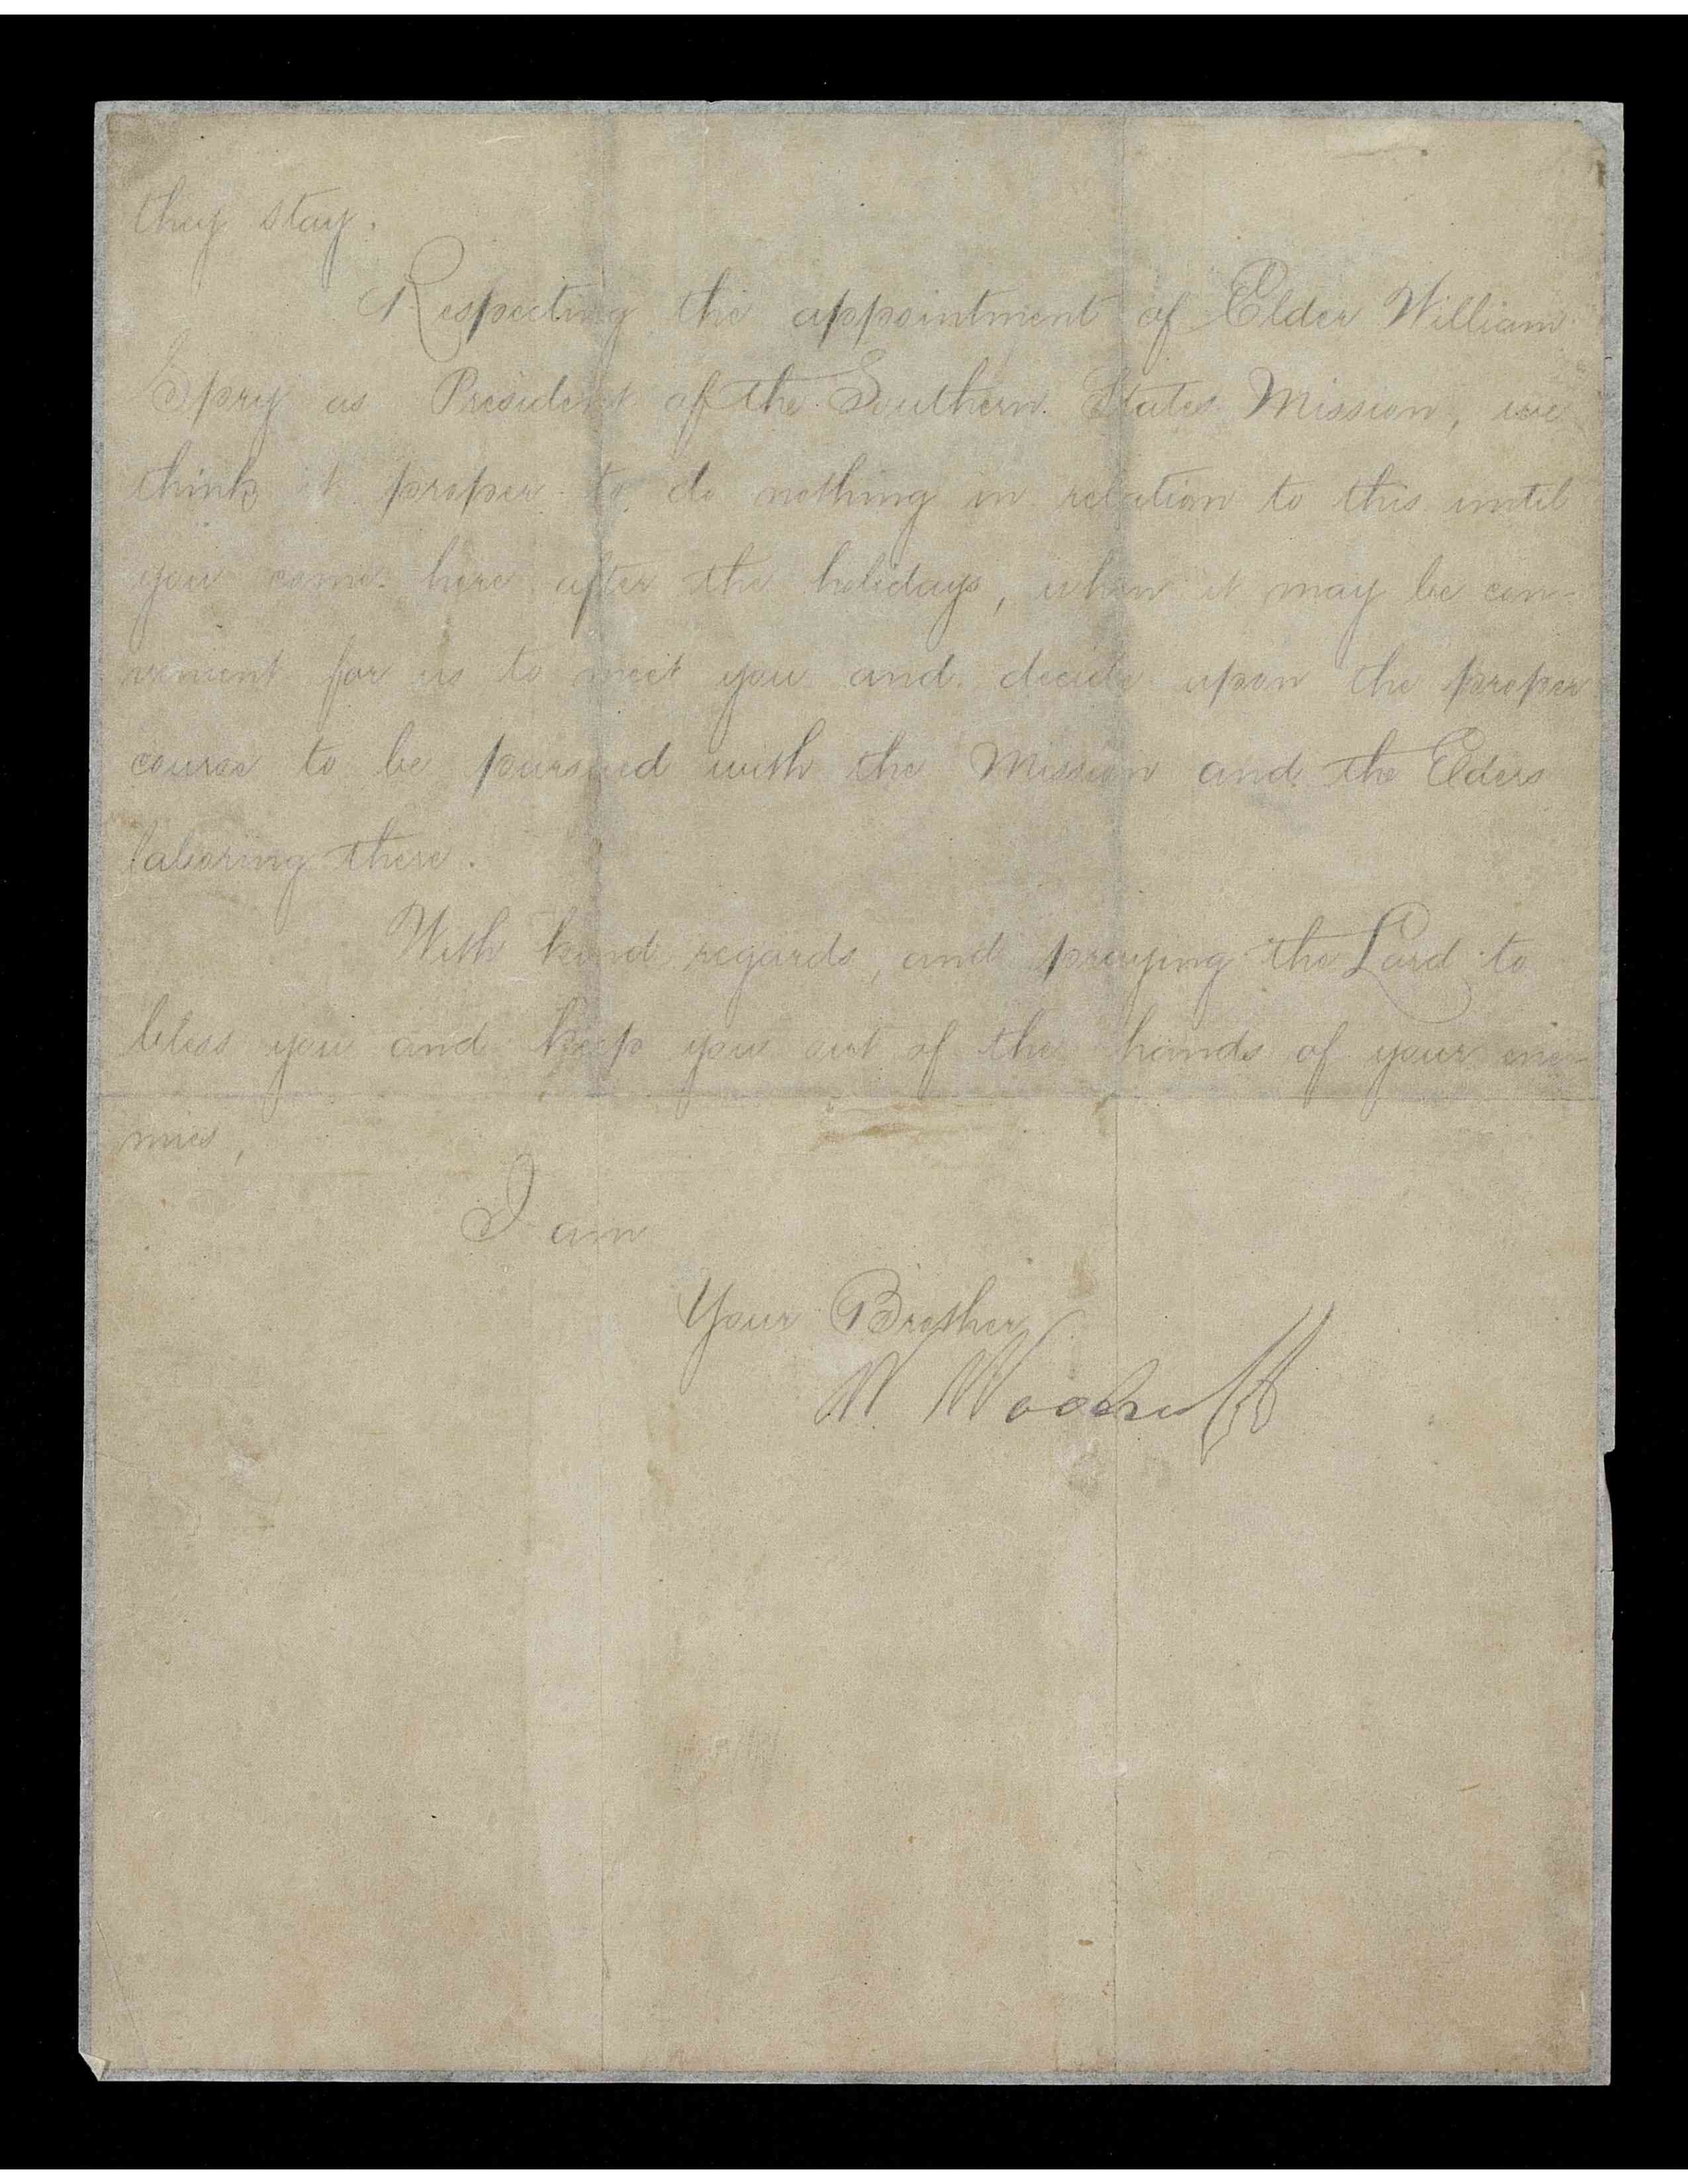 they stay.
Respecting the appointment of Elder William
Spry as President of the Southern States Mission, we
think it proper to do nothing in relation to this until
you come here after the holidays, when it may be con-
venient for us to meet you and decide upon the proper
course to be pursued with the Mission and the Elders
laboring there.
With kind regards, and praying the Lord to
bless you and keep you out of the hands of your ene-
mies,
I am
Your Brother
W. Woodruff